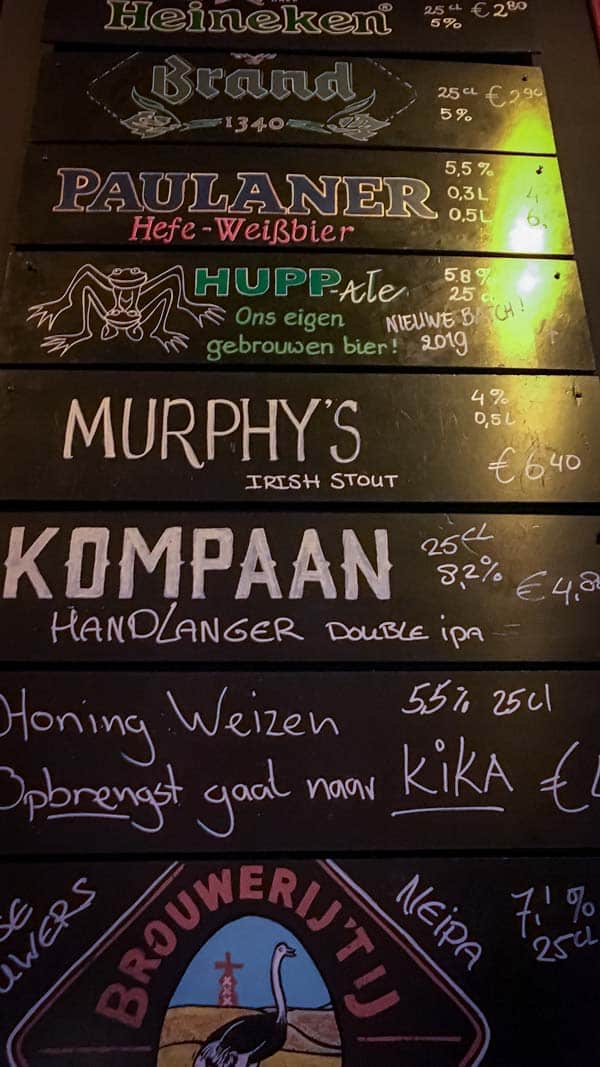 Heineken 25 cl € 2⁸⁰
5%
Brand 25 cl € 2⁹⁰
1340 5%
PAULANER 5,5%
0,3L 4,
Hefe-Weißbier 0,5L 6,
HUPP-Ale 5.8%
Ons eigen 25
gebrouwen bier! NIEUWE B TCH!
2019
MURPHY'S 4%
0,5L
IRISH STOUT € 6⁴⁰
KOMPAAN 25cl
8,2% € 4,8
HANDLANGER DOUBLE ipa
Honing Weizen 5.5% 25cl
Opbrengst gaat naar KiKA €
BROUWERIJ 'T IJ
NEIPA 7,1 %
25cl